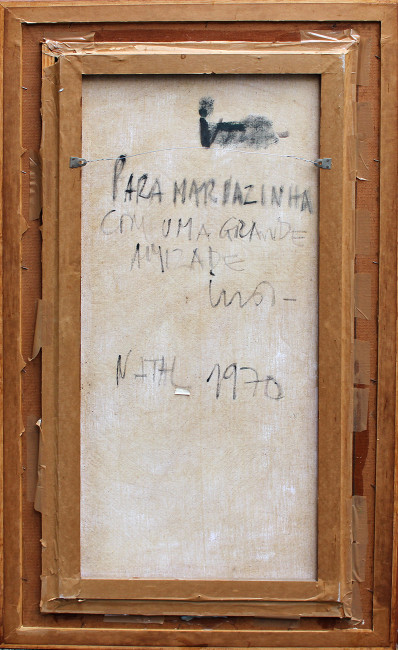 PARA MARIAZINHA
COM UMA GRANDE
AMIZADE
NATAL 1970